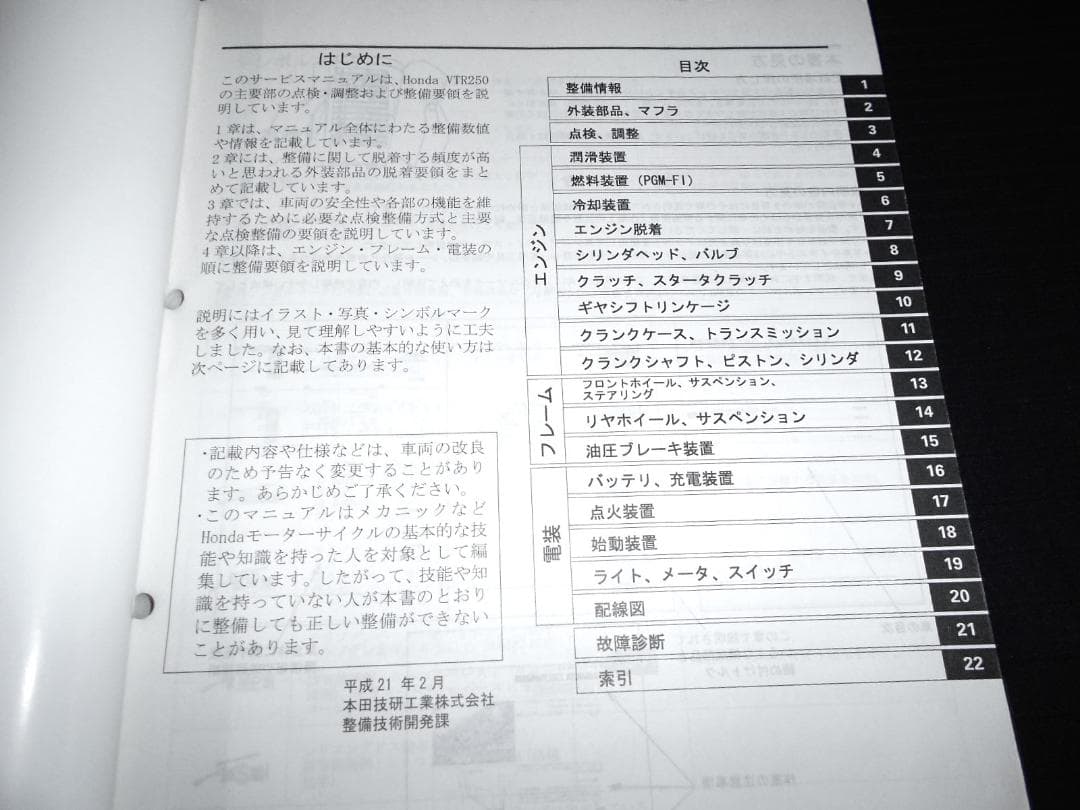 はじめに
このサービスマニュアルは、Honda VTR250
の主要部の点検・調整および整備要領を説
明しています。
1章は、マニュアル全体にわたる整備数値
や情報を記載しています。
2章には、整備に関して脱着する頻度が高
いと思われる外装部品の脱着要領をまと
めて記載しています。
3章では、車両の安全性や各部の機能を維
持するために必要な点検整備方式と主要
な点検整備の要領を説明しています。
4章以降は、エンジン・フレーム・電装の
順に整備要領を説明しています。
説明にはイラスト・写真・シンボルマーク
を多く用い、見て理解しやすいように工夫
しました。なお、本書の基本的な使い方は
次ページに記載してあります。
・記載内容や仕様などは、車両の改良
のため予告なく変更することがあり
ます。あらかじめご了承ください。
・このマニュアルはメカニックなど
Hondaモーターサイクルの基本的な技
能や知識を持った人を対象として編
集しています。したがって、技能や知
識を持っていない人が本書のとおり
に整備しても正しい整備ができない
ことがあります。
平成21年2月
本田技研工業株式会社
整備技術開発課
目次
整備情報 1
外装部品、マフラ 2
点検、調整 3
エンジン
潤滑装置 4
燃料装置(PGM-FI) 5
冷却装置 6
エンジン脱着 7
シリンダヘッド、バルブ 8
クラッチ、スタータクラッチ 9
ギヤシフトリンケージ 10
クランクケース、トランスミッション 11
クランクシャフト、ピストン、シリンダ 12
フレーム
フロントホイール、サスペンション、
ステアリング 13
リヤホイール、サスペンション 14
油圧ブレーキ装置 15
電装
バッテリ、充電装置 16
点火装置 17
始動装置 18
ライト、メータ、スイッチ 19
配線図 20
故障診断 21
索引 22